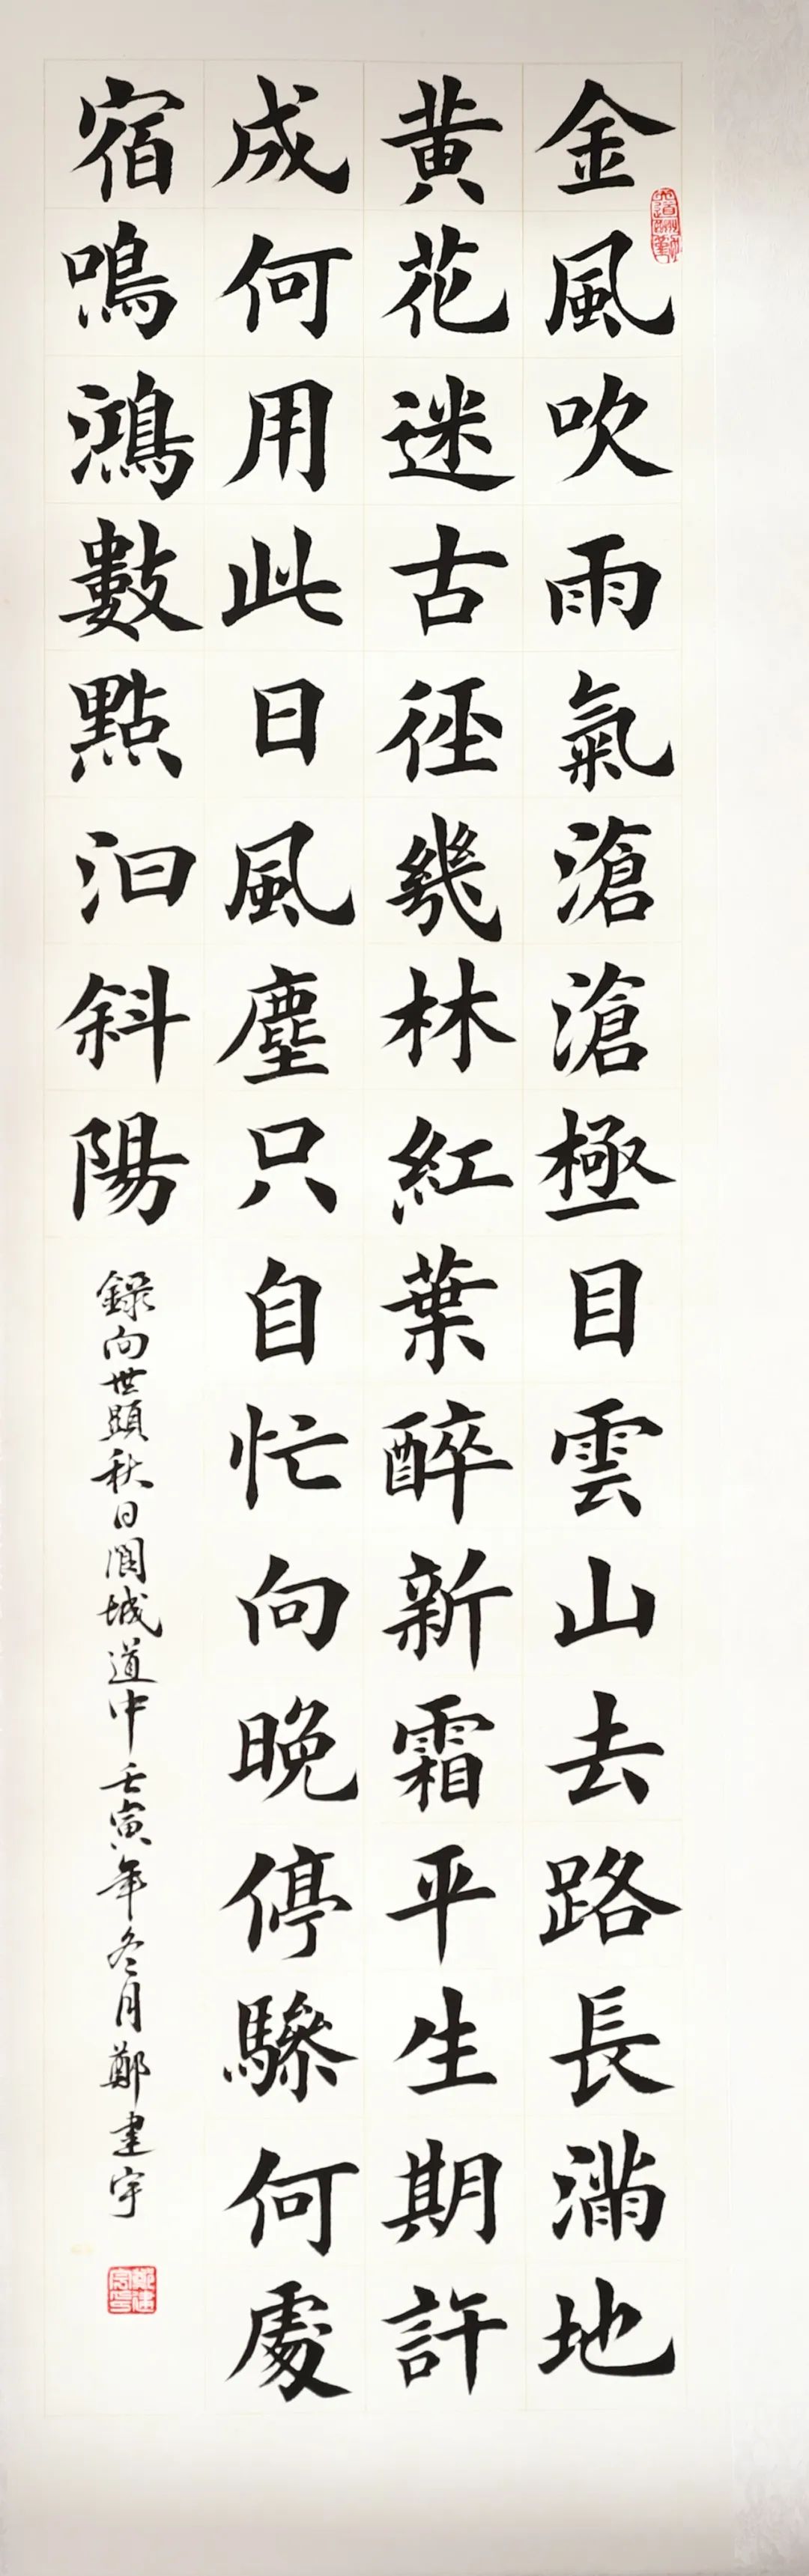 金風吹雨氣滄滄極目雲山去路長滿地
黄花迷古徑幾林紅葉醉新霜平生期許
成何用此日風塵只自忙向晚停驂何處
宿鳴鴻數點汩斜陽
錄向世顕秋日城道中壬寅年冬月鄭建宇
天道酬勤
鄭建宇印